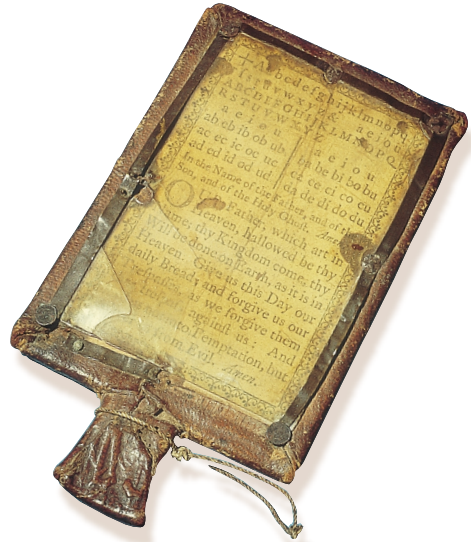 +Aabcdefghijklmnopq
rſstuvwxyz & aeiou
ABCDEFGHIJKLMNOPQ
RSTUVWXYZ
a e i o u
a e i o u
ab eb ib ob ub
ba be bi bo bu
ac ec ic oc uc
ca ce ci co cu
ad ed id od ud
da de di do du
In the Name of the Father, and of the
Son, and of the Holy Ghost. Amen.
O Father, which art in
Heaven, hallowed be thy
Name; thy Kingdom come, thy
Will be done on Earth, as it is in
Heaven. Give us this Day our
daily Bread; and forgive us our
as we forgive them
against us: And
to Temptation, but
Evil. Amen.